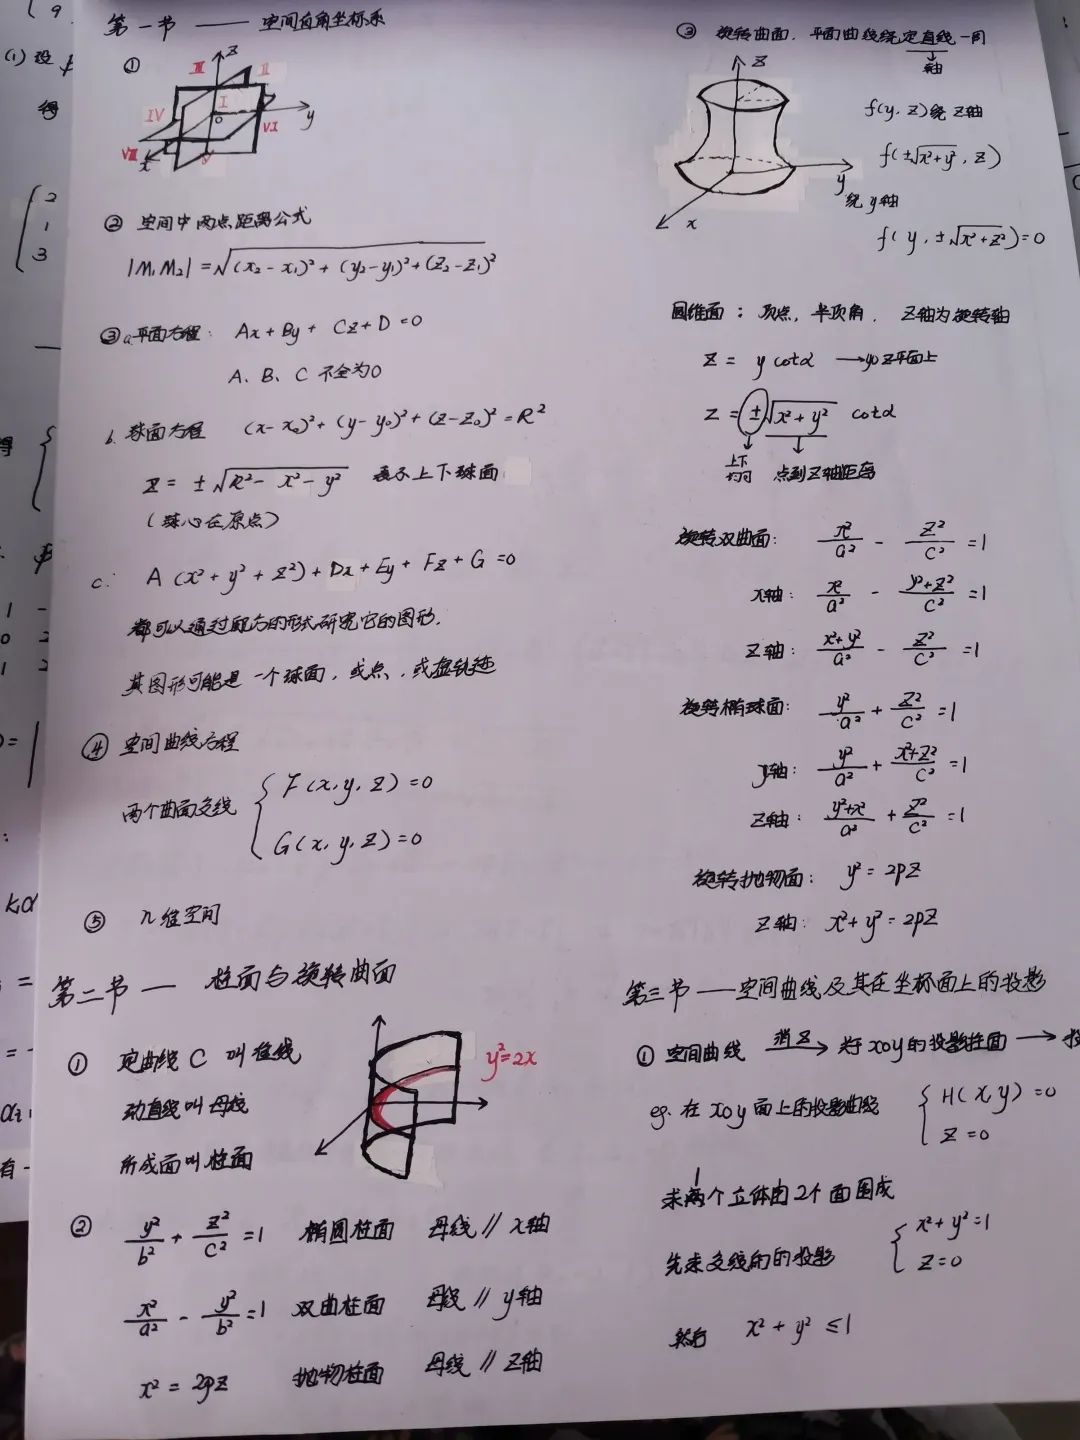 第一节 —— 空间直角坐标系
①
z
III II
IV I
o y
VI
VIII x V
② 空间中两点距离公式
|M₁M₂| = √(x₂-x₁)²+(y₂-y₁)²+(z₂-z₁)²
③ a.平面方程: Ax+By+Cz+D=0
A、B、C 不全为0
b. 球面方程 (x-x₀)²+(y-y₀)²+(z-z₀)²=R²
z = ±√R²-x²-y² 表示上下球面
(球心在原点)
c: A(x²+y²+z²)+Dx+Ey+Fz+G=0
都可以通过配方的形式研究它的图形.
其图形可能是一个球面, 或点, 或虚轨迹
④ 空间曲线方程
两个曲面交线 { F(x,y,z)=0
G(x,y,z)=0
⑤ n维空间
第二节 — 柱面与旋转曲面
① 定曲线C 叫准线
动直线叫母线
所成面叫柱面
y²=2x
② y²/b² + z²/c² =1 椭圆柱面 母线 // x轴
x²/a² - y²/b² =1 双曲柱面 母线 // y轴
x² = 2pz 抛物柱面 母线 // z轴
③ 旋转曲面. 平面曲线绕定直线一周
轴
z
y
x
f(y, z)绕z轴
f(±√x²+y², z)
绕y轴
f(y, ±√x²+z²)=0
圆锥面: 顶点, 半顶角. z轴为旋转轴
z = y cotα → yoz平面上
z = ±√x²+y² cotα
上下均可 点到z轴距离
旋转双曲面: x²/a² - z²/c² =1
x轴: x²/a² - y²+z²/c² =1
z轴: x²+y²/a² - z²/c² =1
旋转椭球面: y²/a² + z²/c² =1
y轴: y²/a² + x²+z²/c² =1
z轴: y²+x²/a² + z²/c² =1
旋转抛物面: y²=2pz
z轴: x²+y²=2pz
第三节 —— 空间曲线及其在坐标面上的投影
① 空间曲线 消z→ 关于xoy的投影柱面 → 投
eg. 在xoy面上的投影曲线 { H(x,y)=0
z=0
求两个立体由2个面围成
先求交线的的投影 { x²+y²=1
z=0
然后 x²+y²≤1
(1) 设
得
2
1
3